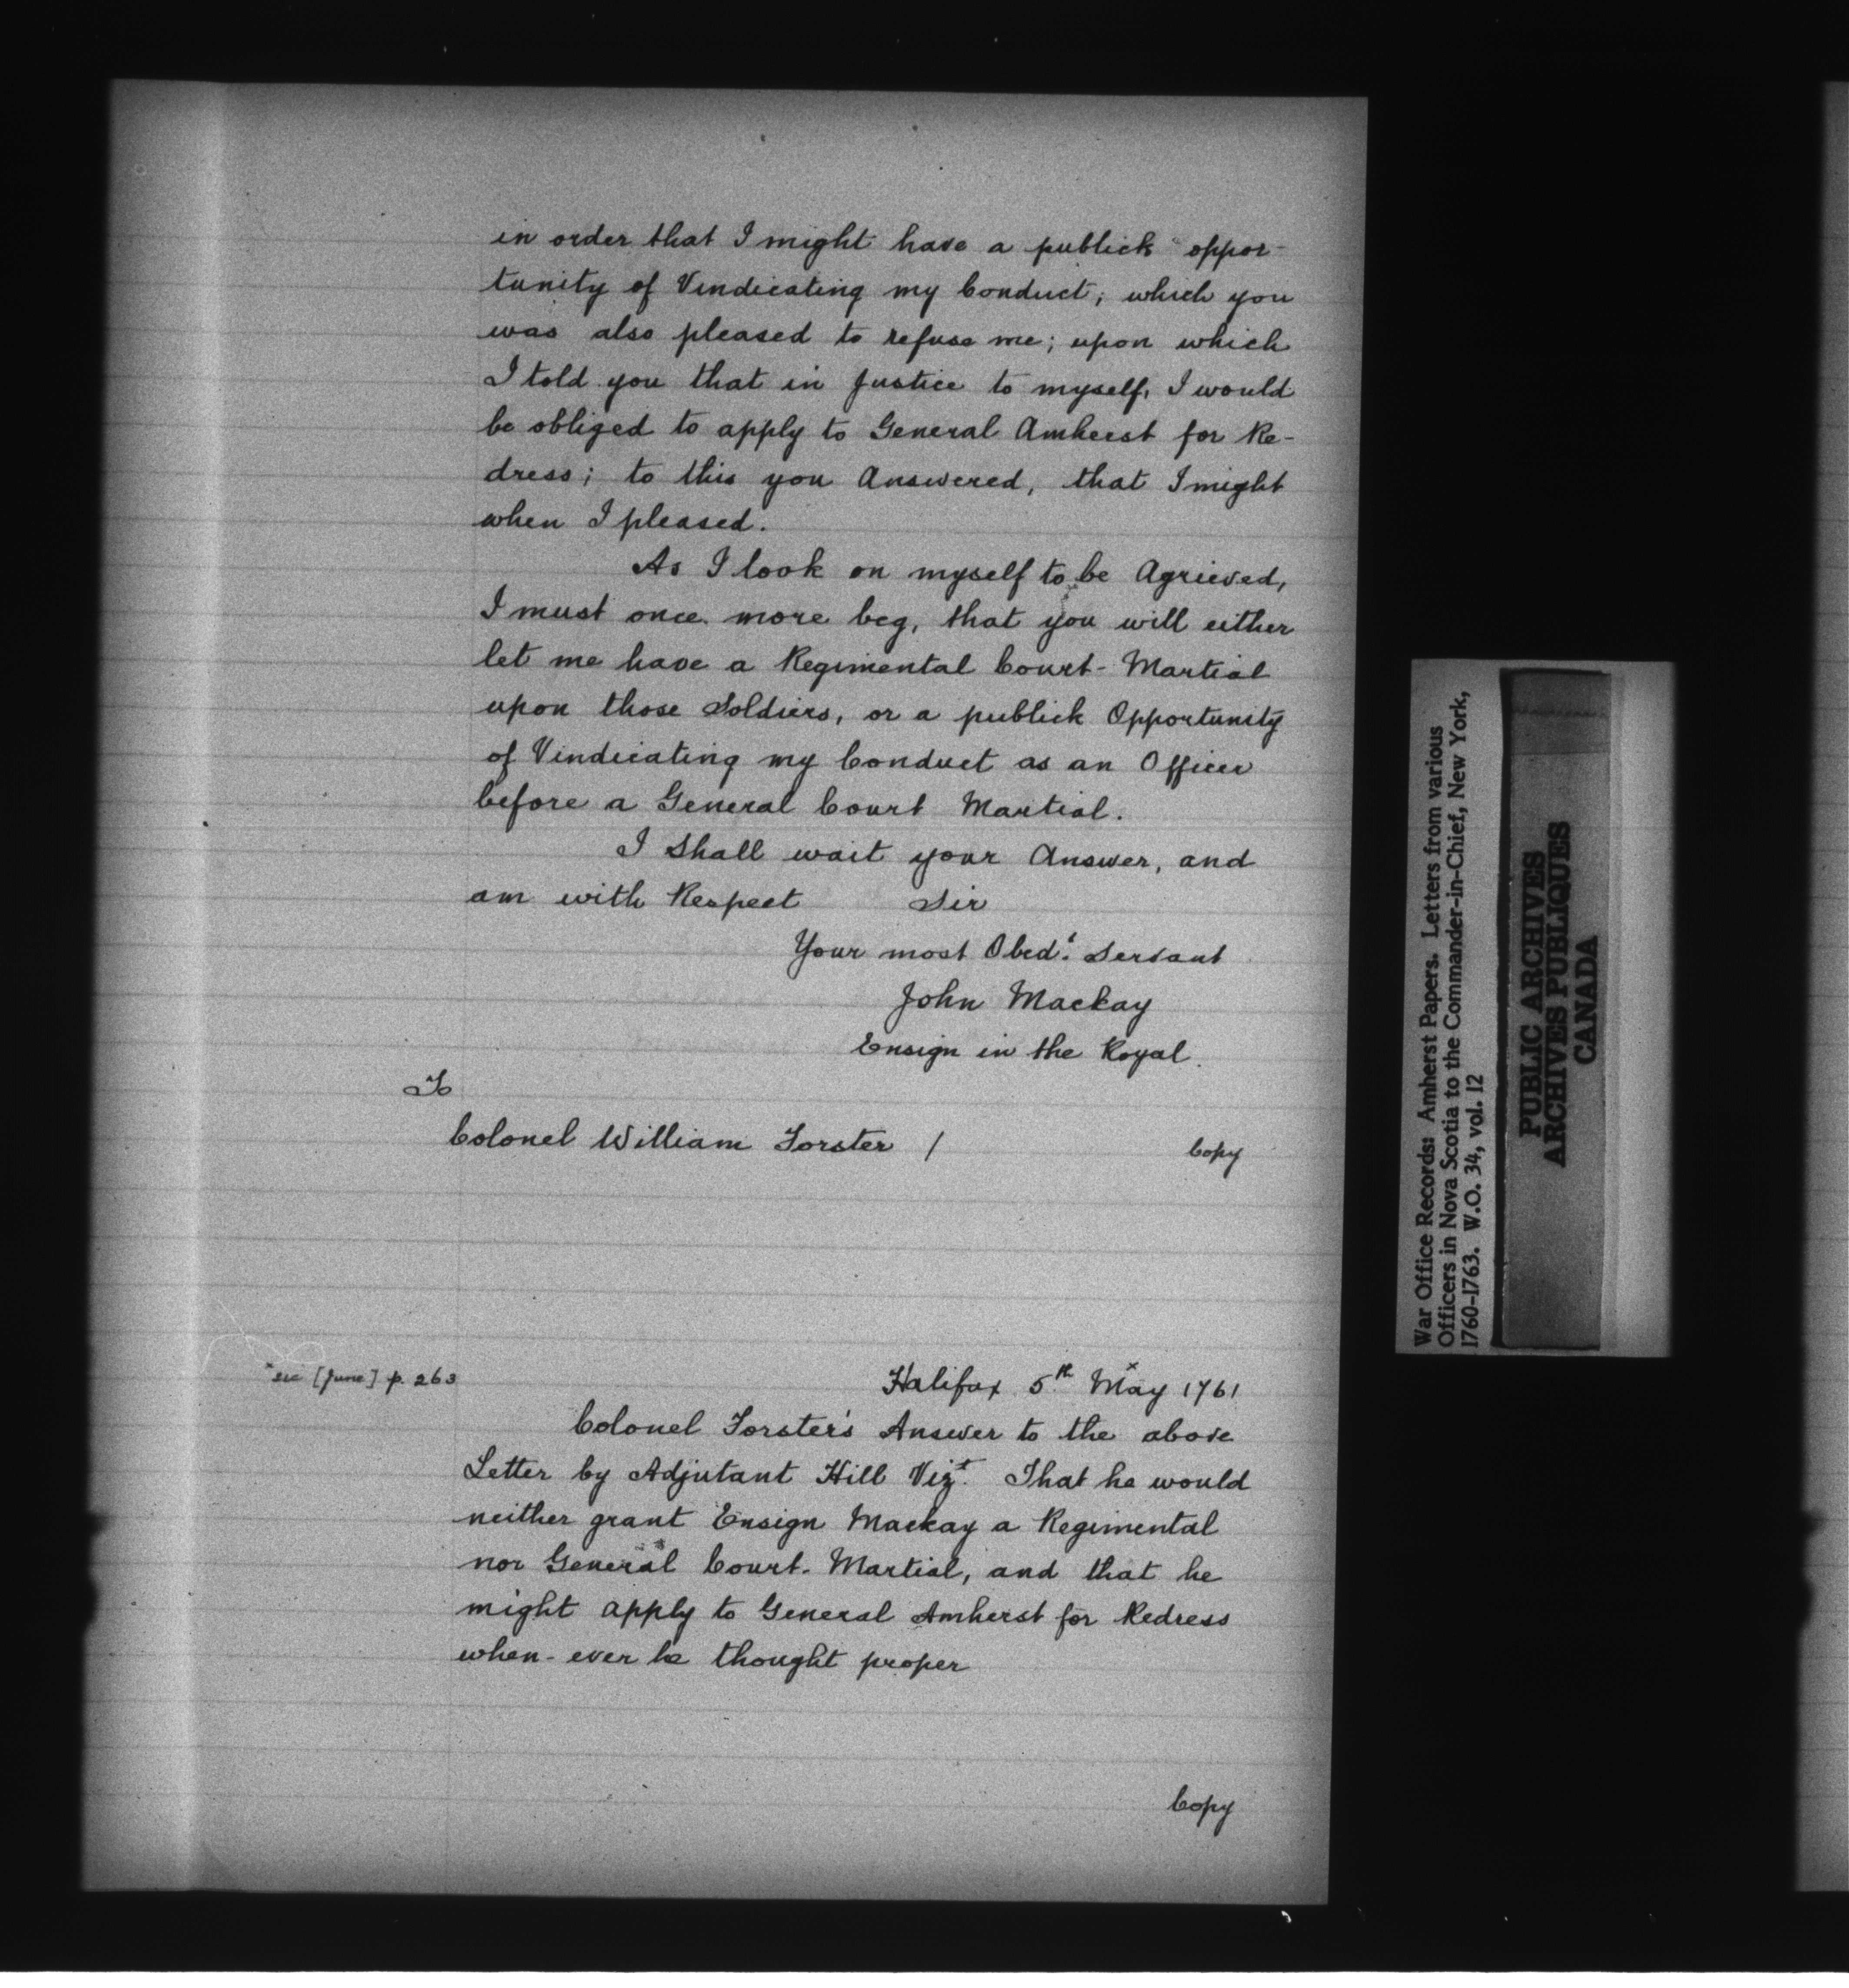 in order that I might have a publick oppor-
tunity of Vindicating my Conduct; which you
was also pleased to refuse me; upon which
I told you that in Justice to myself, I would
be obliged to apply to General Amherst for Re-
dress; to this you Answered, that I might
when I pleased.
As I look on myself to be Agrieved,
I must once more beg, that you will either
let me have a Regimental Court-Martial
upon those Soldiers, or a publick Opportunity
of Vindicating my Conduct as an Officer
before a General Court Martial.
I Shall wait your Answer, and
am with Respect Sir
Your most Obed.t Servant
John Mackay
Ensign in the Royal.
To
Colonel William Forster /
Copy
*sic [June] p. 263
Halifax 5.th May* 1761
Colonel Forster's Answer to the above
Letter by Adjutant Hill Viz.t That he would
neither grant Ensign Mackay a Regimental
nor General Court-Martial, and that he
might apply to General Amherst for Redress
when-ever he thought proper
Copy
War Office Records: Amherst Papers. Letters from various
Officers in Nova Scotia to the Commander-in-Chief, New York,
1760-1763. W.O. 34, vol. 12
PUBLIC ARCHIVES
ARCHIVES PUBLIQUES
CANADA